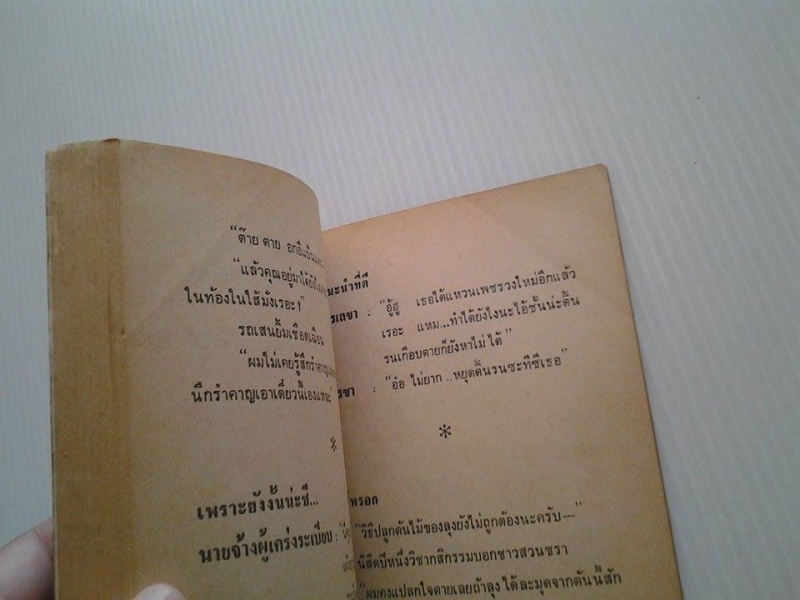 “ต๊าย ตาย
“แล้วคุณอยู่มาได้ยังไง
ในท้องในไส้มั่งเรอะ?”
รถเสนยิ้มเชือดเฉือน
“ผมไม่เคยรู้สึกรำคาญ
นึกรำคาญเอาเดี๋ยวนี้เองแหละ”
*
เพราะยังงั้นน่ะซี...
นายจ้างผู้เคร่งระเบียบ :
นะนำที่ดี
รเลขา : “อู้ฮู เธอได้แหวนเพชรวงใหม่อีกแล้ว
เรอะ แหม...ทำได้ยังไงนะไอ้ชั้นน่ะดิ้น
รนเกือบตายก็ยังหาไม่ได้”
รชา : “อ๋อ ไม่ยาก ..หยุดดิ้นรนซะทีซีเธอ”
*
หรอก
“วิธีปลูกต้นไม้ของลุงยังไม่ถูกต้องนะครับ—”
นิสิตปีหนึ่งวิชากสิกรรมบอกชาวสวนชรา
“ผมคงแปลกใจตายเลยถ้าลุงได้ละมุดจากต้นนี้สัก